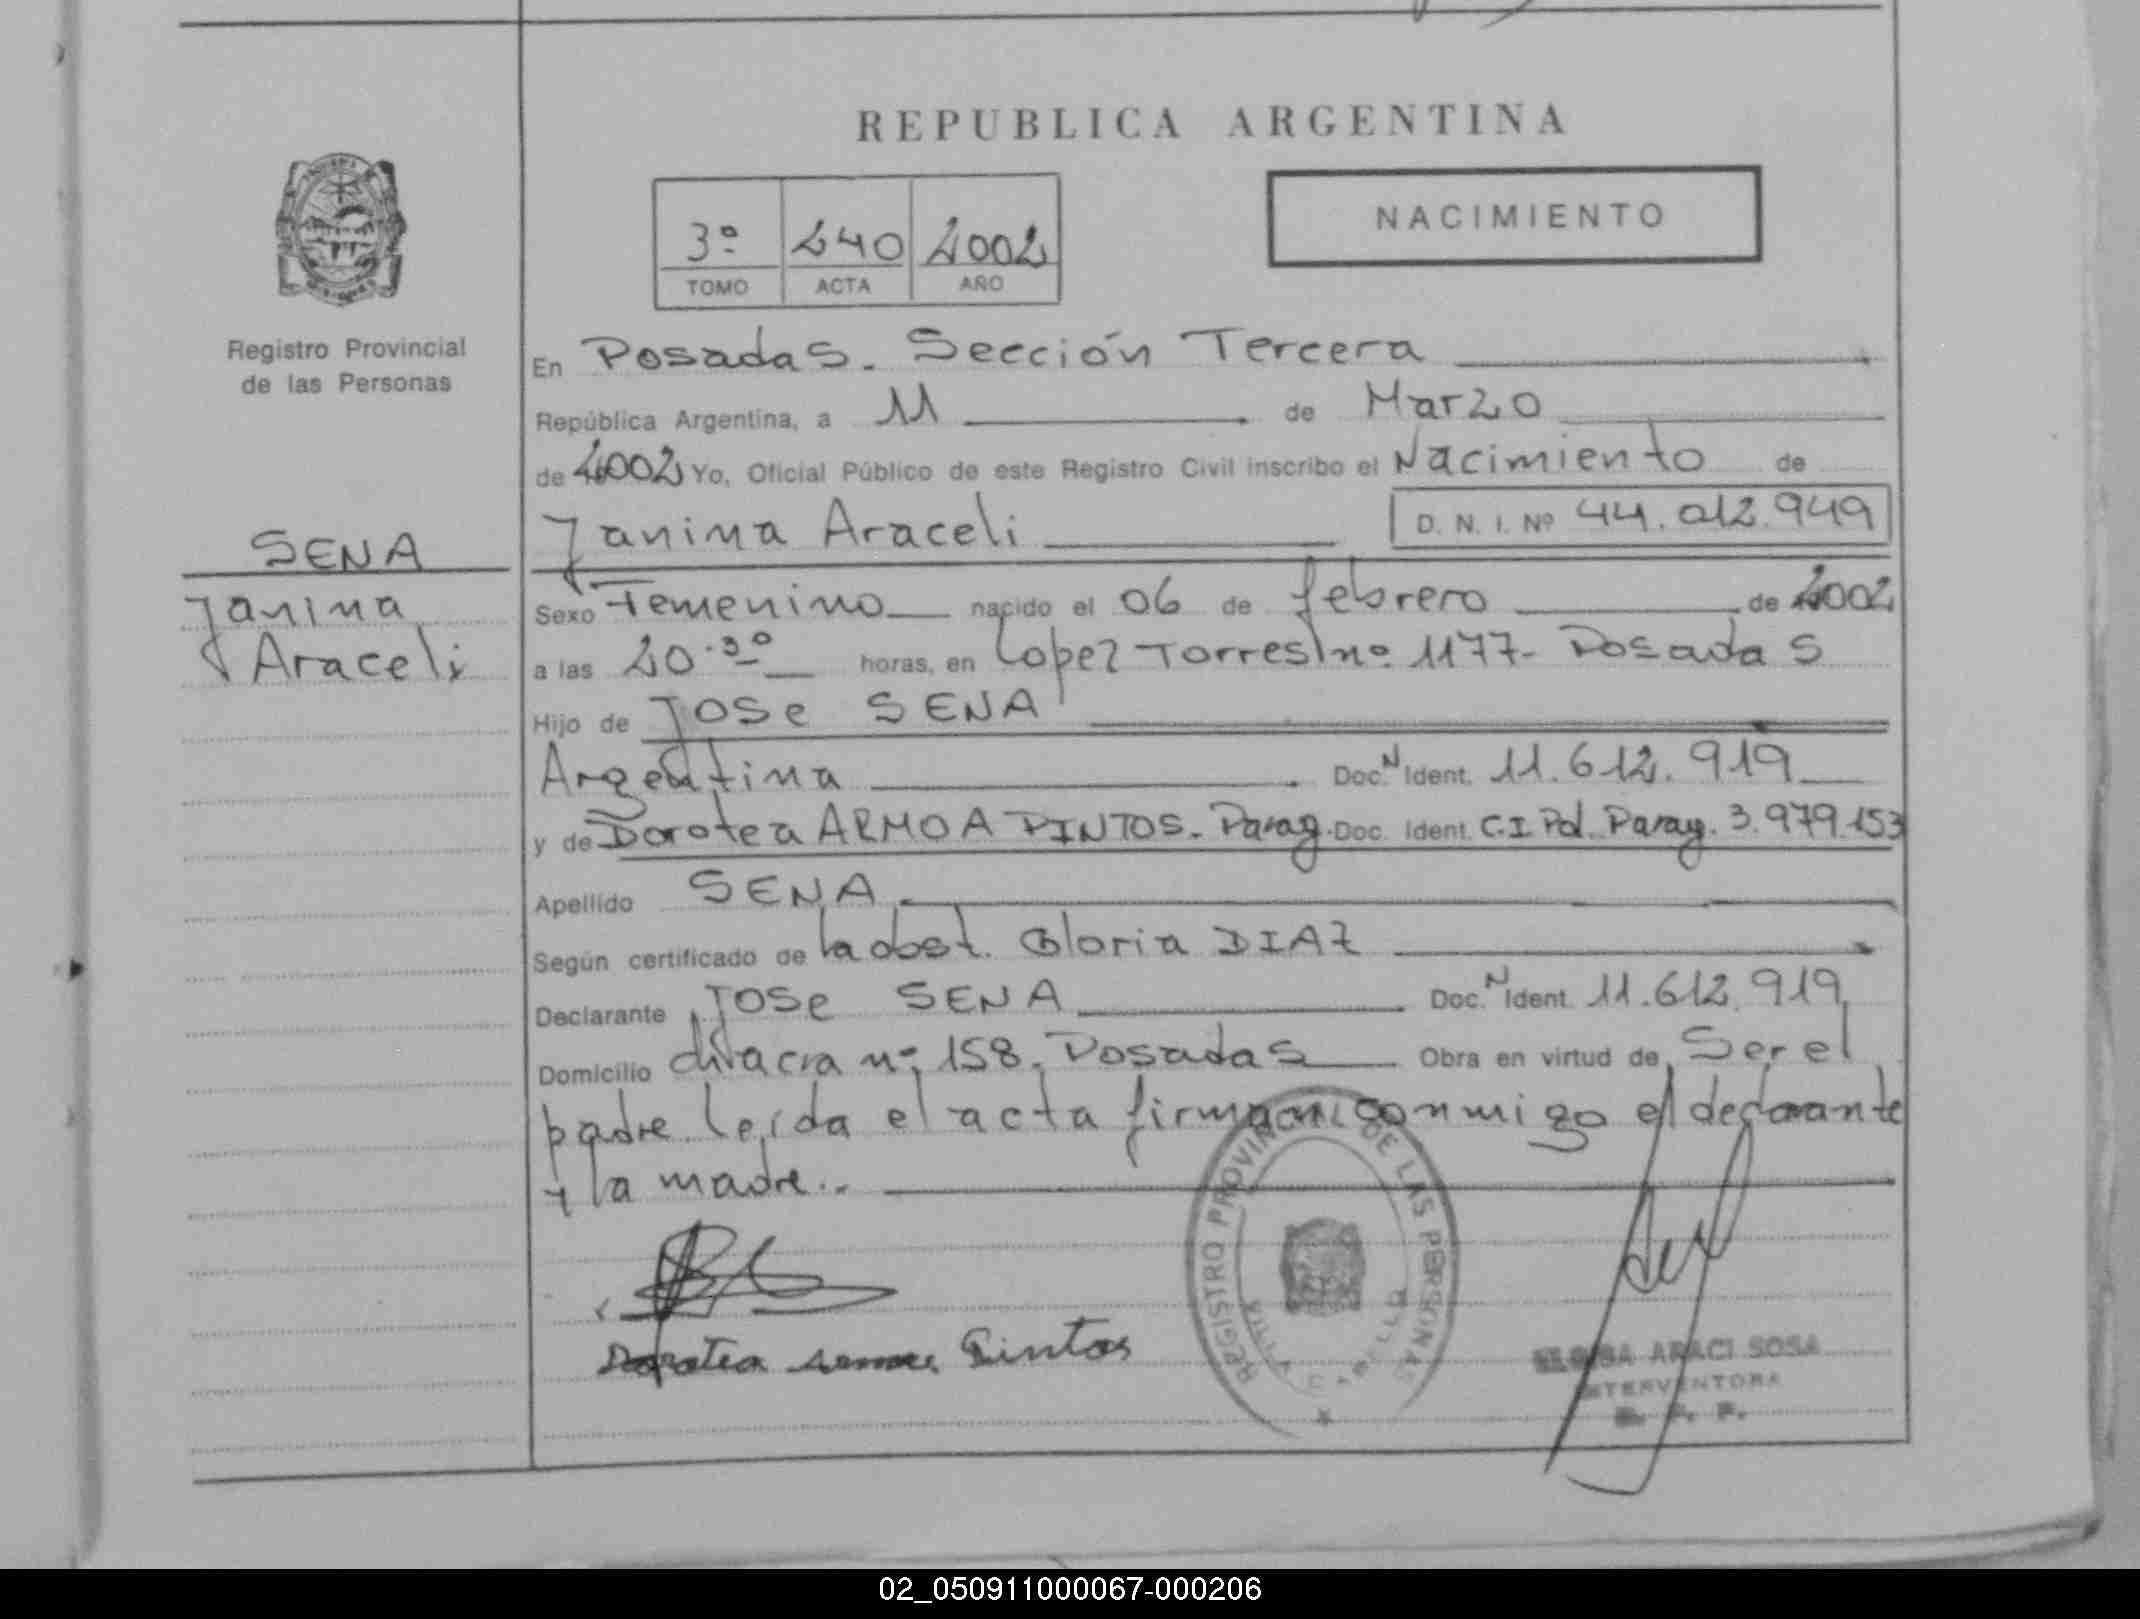 REPUBLICA ARGENTINA
3º 240 2002
TOMO ACTA AÑO
NACIMIENTO
Registro Provincial
de las Personas
SENA
Yanina
Araceli
En Posadas. Sección Tercera
República Argentina, a 11 de Marzo
de 2002 Yo, Oficial Público de este Registro Civil inscribo el Nacimiento de
Yanina Araceli D. N. I. Nº 44.012.949
Sexo Femenino nacido el 06 de febrero de 2002
a las 20.30 horas, en Lopez Torres nº 1177- Posadas
Hijo de JOSe SENA
Argentina Doc. N Ident. 11.612.919
y de Dorotea ARMOA PINTOS. Parag. Doc. Ident. C.I Pol. Paray. 3.979.153
Apellido SENA
Según certificado de la obst. Gloria DIAZ
Declarante JOSe SENA Doc. N Ident. 11.612.919
Domicilio chacra nº 158. Posadas Obra en virtud de Ser el
padre leída el acta firman conmigo el declarante
y la madre..
Dorotea Pintos
REGISTRO PROVINCIAL DE LAS PERSONAS
VILLA CABELLO
ARACI SOSA
INTERVENTORA
02_050911000067-000206